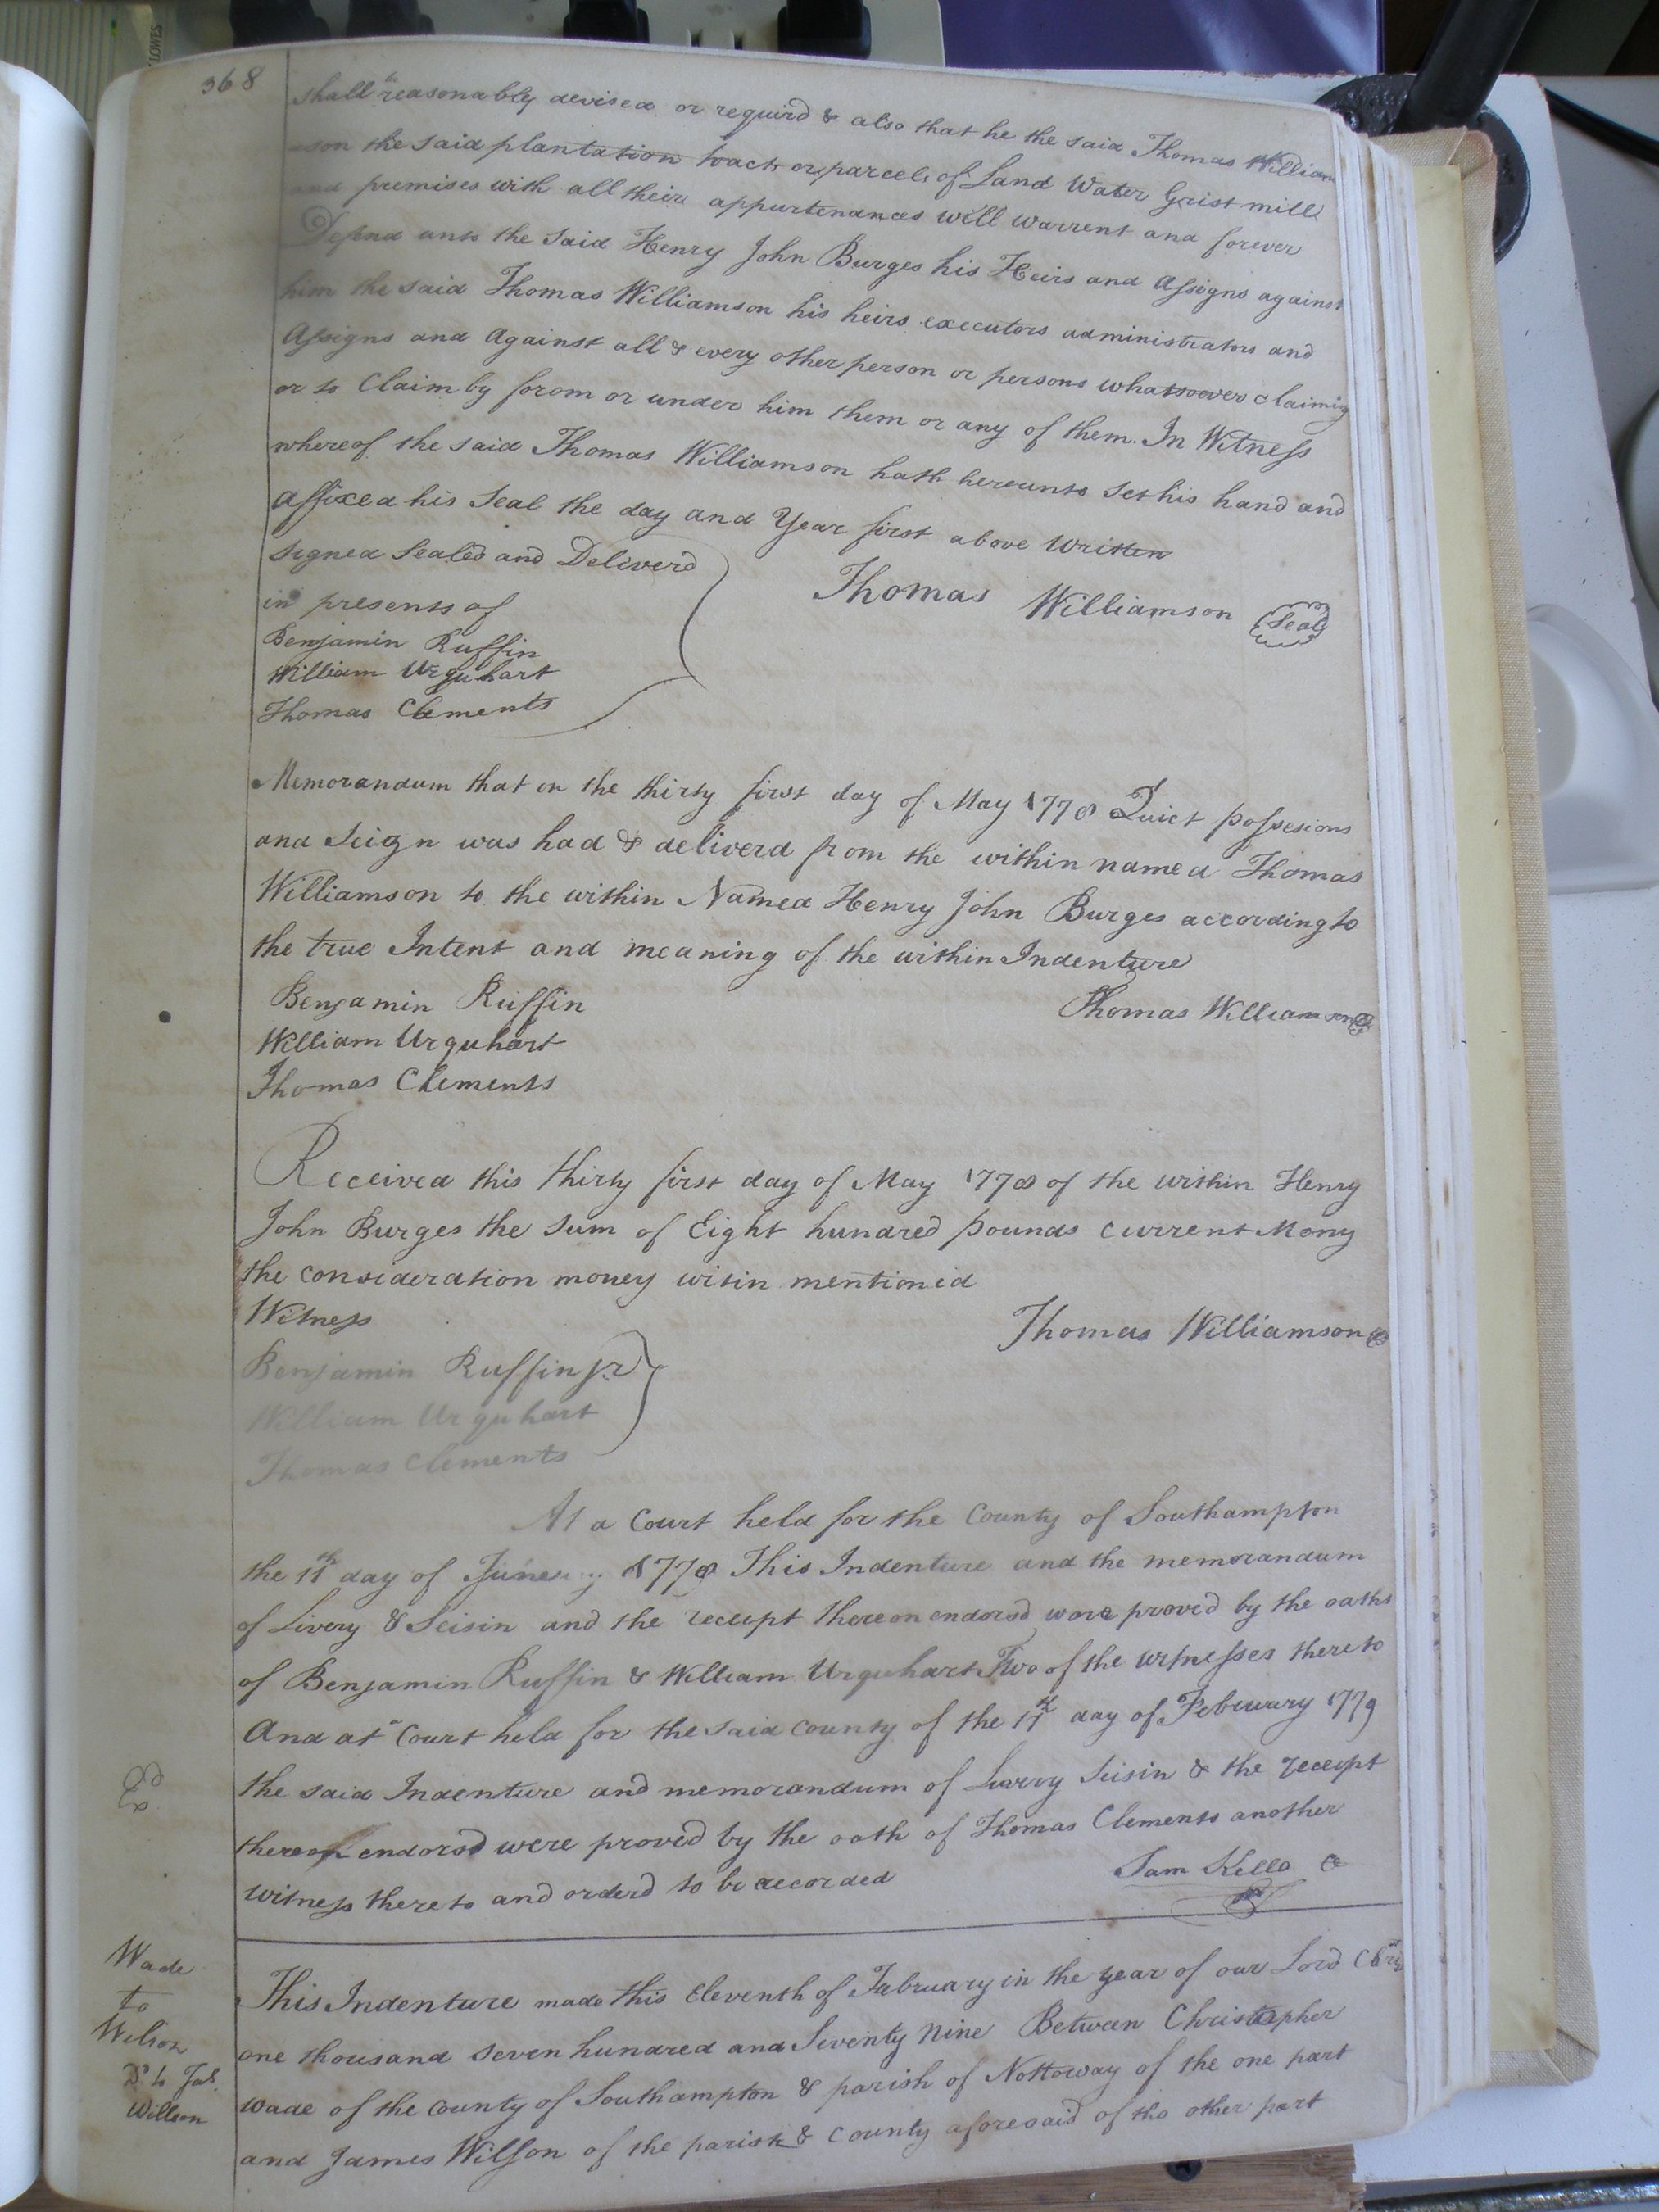 368
shall be reasonably devised or requird & also that he the said Thomas William
-son the said plantation tract or parcel of Land Water Grist mill
and premises with all their appurtenances will warrent and forever
Defend unto the said Henry John Burges his Heirs and Assigns against
him the said Thomas Williamson his heirs executors administrators and
Assigns and Against all & every other person or persons whatsoever claiming
or to Claim by from or under him them or any of them. In Witness
whereof the said Thomas Williamson hath hereunto set his hand and
affixed his Seal the day and Year first above Written
Signed Sealed and Deliverd
in presents of
Thomas Williamson Seal
Benjamin Ruffin
William Urquhart
Thomas Clements
Memorandum that on the thirty first day of May 1778 Quiet possesions
and Seizn was had & deliverd from the within named Thomas
Williamson to the within Named Henry John Burges according to
the true Intent and meaning of the within Indenture
Benjamin Ruffin
Thomas Williamson
William Urquhart
Thomas Clements
Received this thirty first day of May 1778 of the within Henry
John Burges the Sum of Eight hundred pounds current Mony
the consideration money witin mentioned
Witness
Thomas Williamson
Benjamin Ruffin Jr
William Urquhart
Thomas Clements
At a Court held for the County of Southampton
the 11th day of June 1778 This Indenture and the memorandum
of Livery & Seisin and the receipt thereon endorsd were proved by the oaths
of Benjamin Ruffin & William Urquhart Two of the witnesses thereto
And at a Court held for the said county of the 11th day of February 1779
the said Indenture and memorandum of Livery Seisin & the receipt
thereon endorsd were proved by the oath of Thomas Clements another
witness thereto and orderd to be recorded
Sam Kello
Exd
Wade
to
Wilson
Dd to Jas.
Willson
This Indenture made this Eleventh of February in the year of our Lord Christ
one thousand seven hundred and Seventy Nine Between Christopher
Wade of the County of Southampton & parish of Nottoway of the one part
and James Wilson of the parish & County aforesaid of the other part